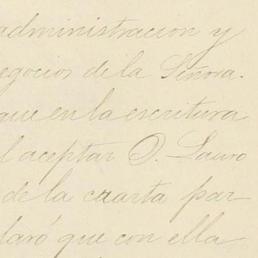 administracion y
egocios de la Señora.
que en la escritura
l aceptar D. Lauro
de la cuarta par
laró que con ella